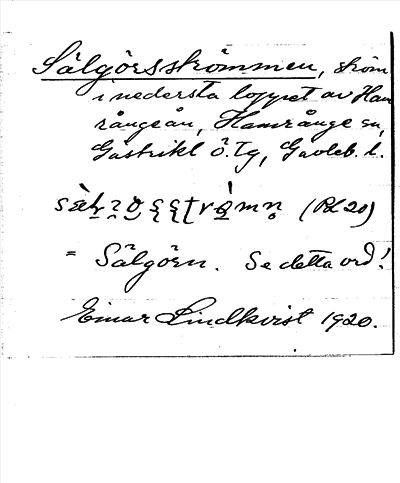 Sälgörsströmmen, ström
i nedersta loppet av Ham
rångeån, Hamrånge sn,
Gästrikl ö. tg, Gävleb. l.
(Rd 20)
= Sälgörn. Se detta ord!
Einar Lindkvist 1920.